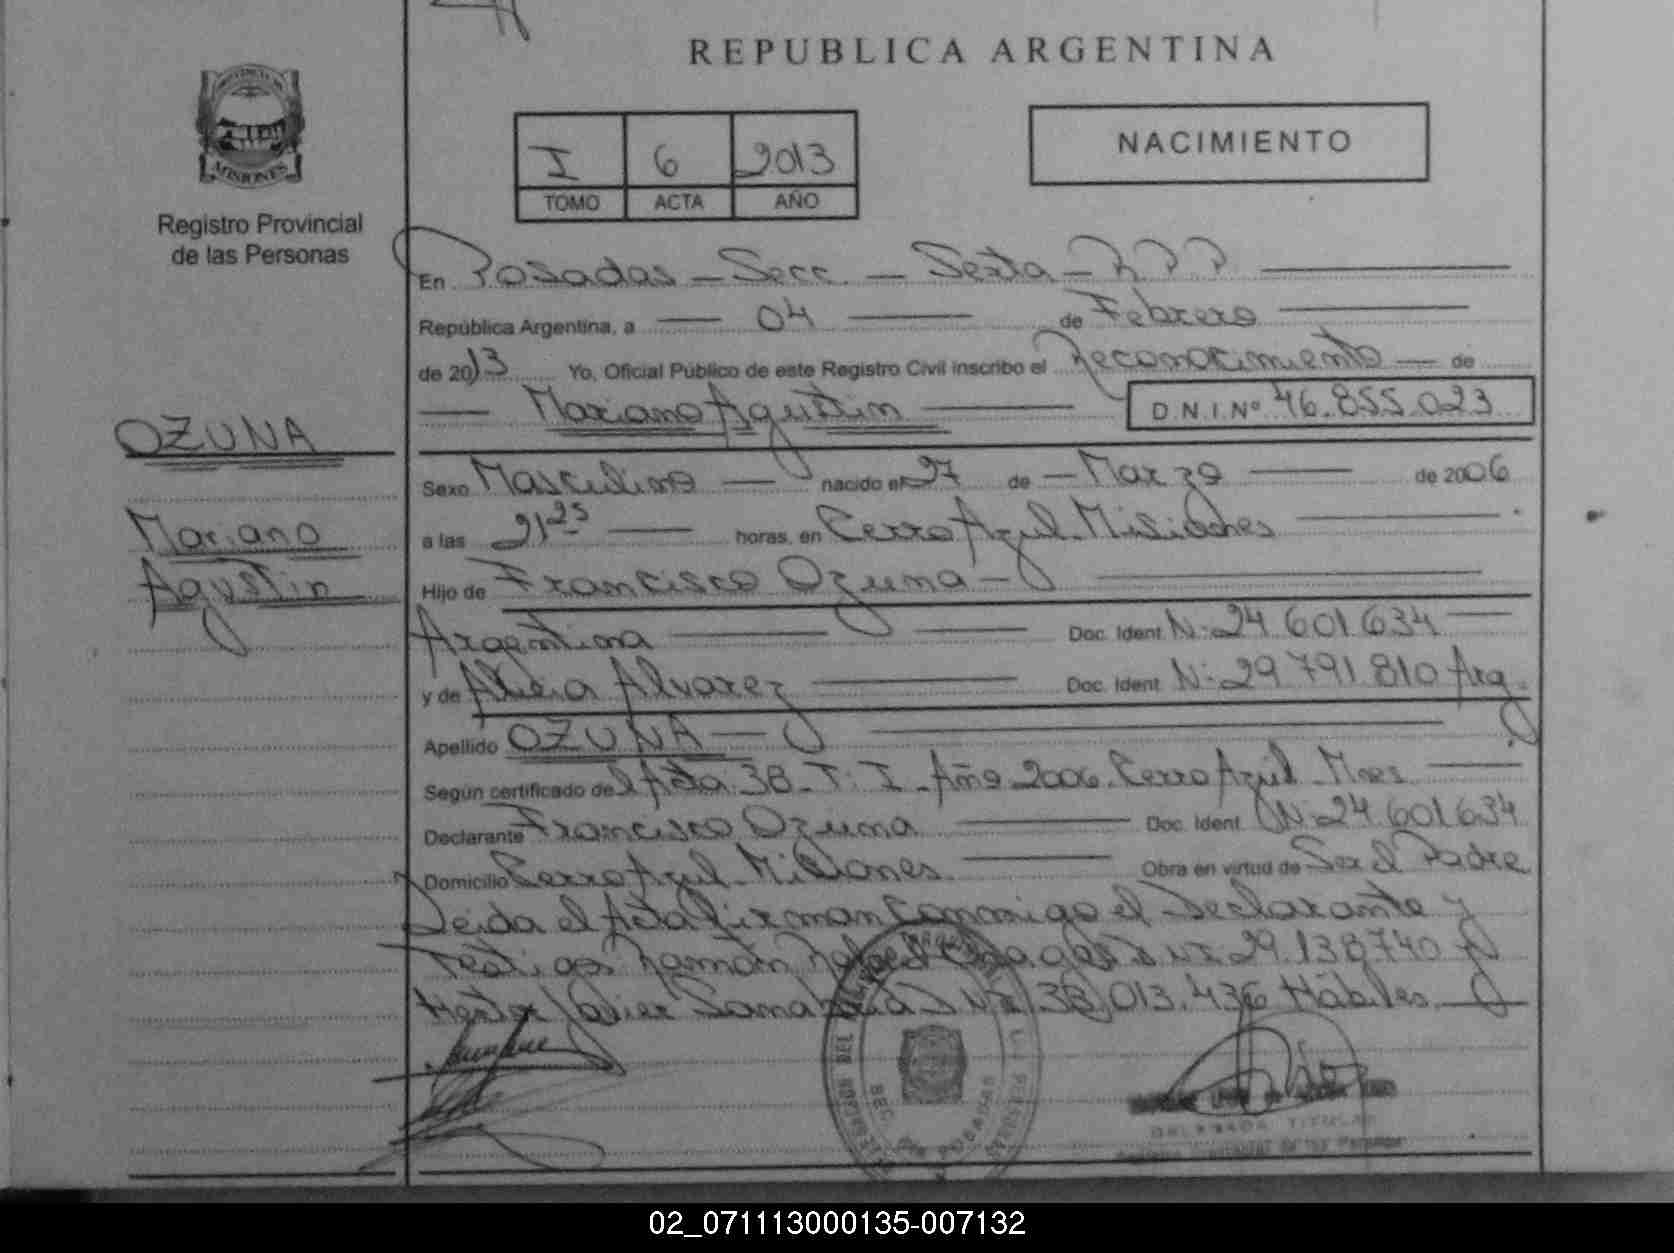 REPUBLICA ARGENTINA
PROVINCIA DE
MISIONES
Registro Provincial
de las Personas
I 6 2013
TOMO ACTA AÑO
NACIMIENTO
En Posadas - Secc. - Sexta - R P P
República Argentina, a 04 de Febrero
de 2013 Yo, Oficial Público de este Registro Civil inscribo el Reconocimiento de
Mariano Agustin D.N.I.Nº 46.855.023
OZUNA
Mariano
Agustin
Sexo Masculino nacido el 27 de Marzo de 2006
a las 21 25 horas, en Cerro Azul Misiones
Hijo de Francisco Ozuna
Argentina Doc. Ident. Nº 24 601 634
y de Alicia Alvarez Doc. Ident. Nº 29 791 810 Arg.
Apellido OZUNA
Según certificado del Acta 38 - T: I - Año 2006 - Cerro Azul - Mnes
Declarante Francisco Ozuna Doc. Ident. Nº 24 601 634
Domicilio Cerro Azul Misiones Obra en virtud de Ser el Padre
Leida el Acta firman Conmigo el Declarante y
Testigos Ramón Rafael 29.138740 y
Hector Javier Sanabria 38.013.436 Hábiles
POSADAS
DELEGADA TITULAR
02_071113000135-007132